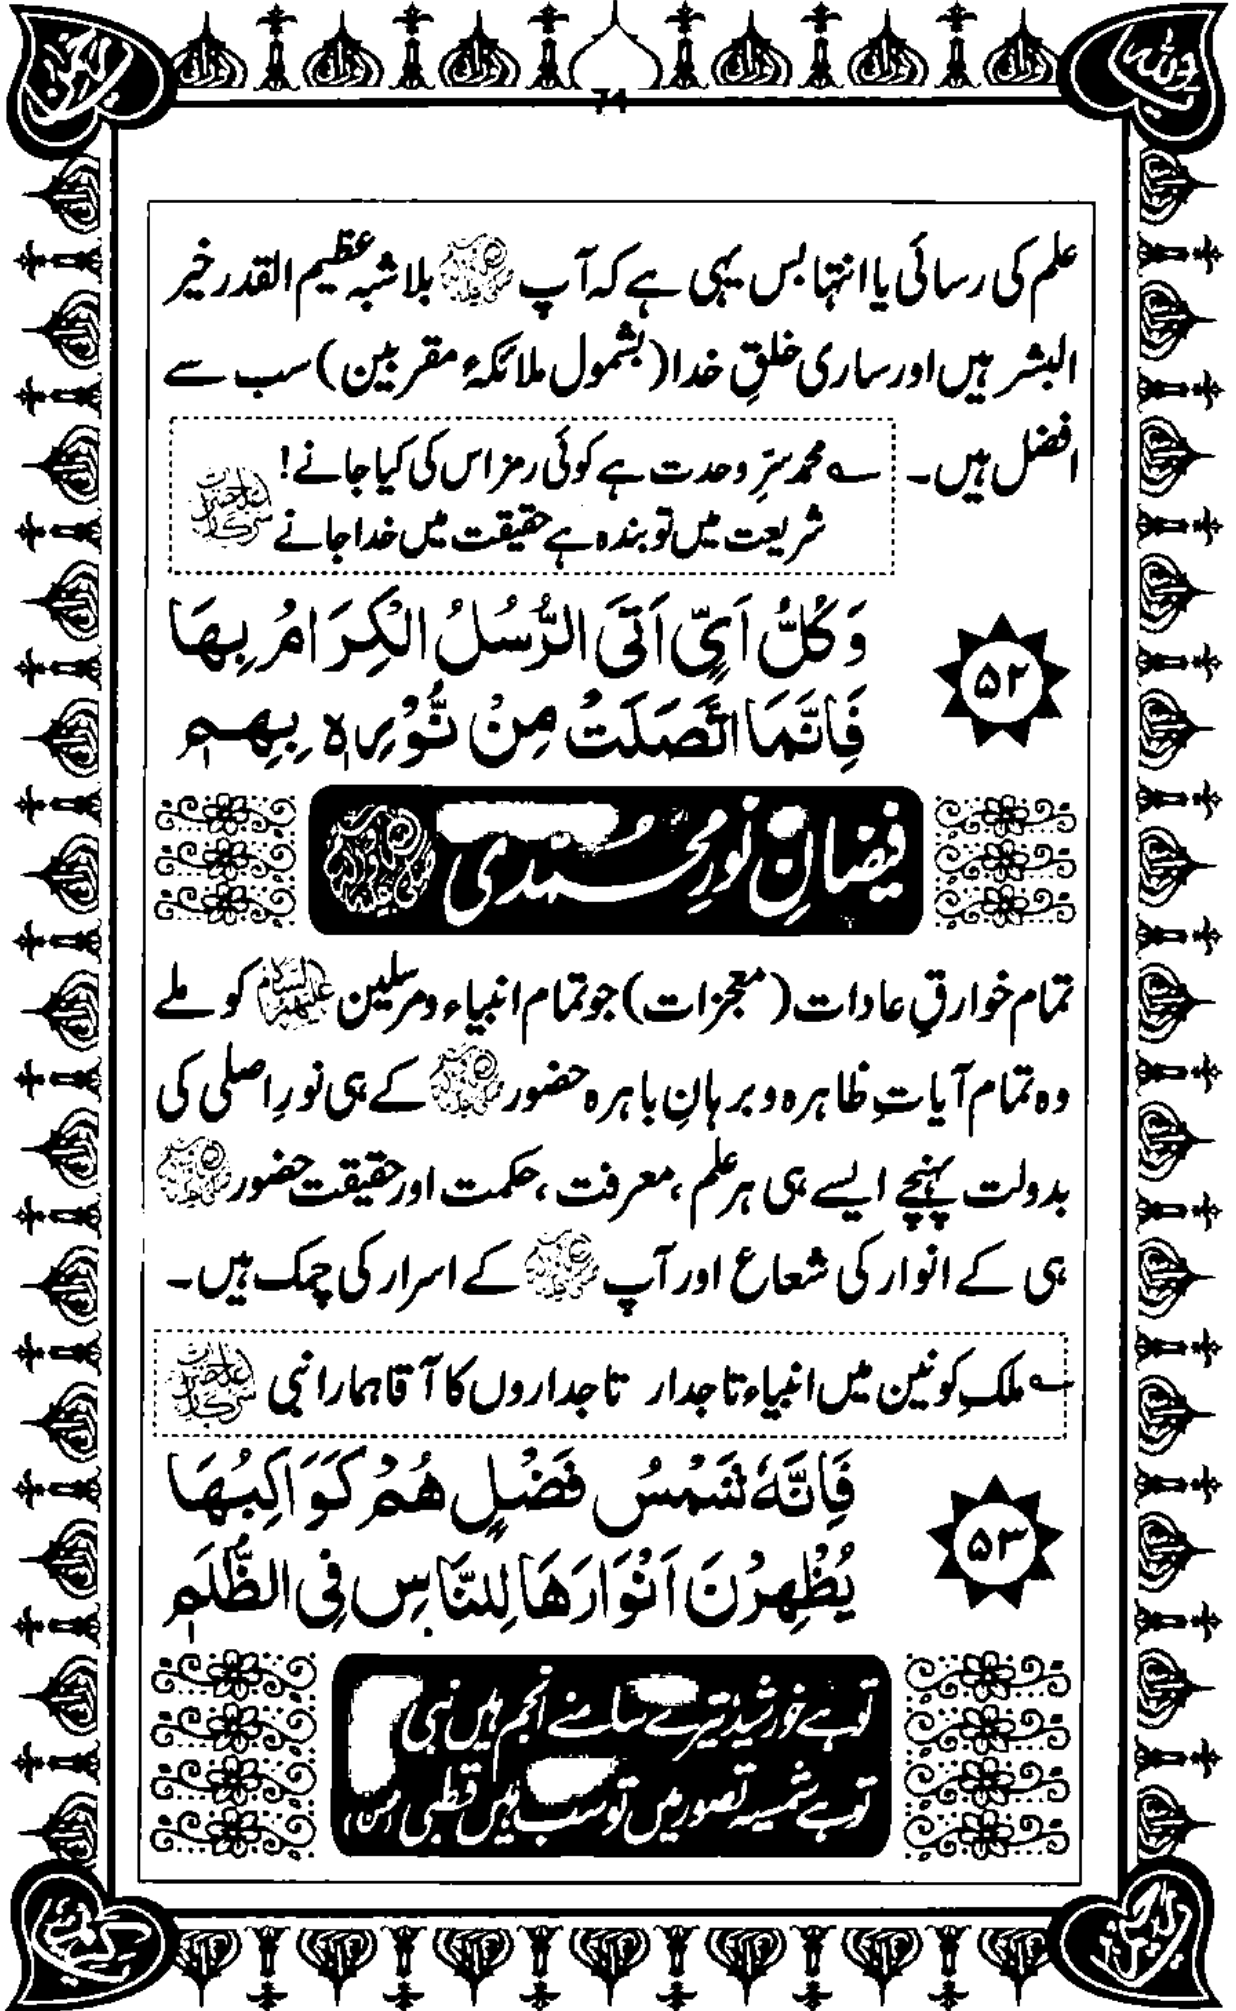 74
علم کی رسائی یا انتہا بس یہی ہے کہ آپ ﷺ بلا شبہ عظیم القدر خیر
البشر ہیں اور ساری خلقِ خدا (بشمول ملائکۂ مقربین) سب سے
افضل ہیں۔
؎ محمد سرِّ وحدت ہے کوئی رمز اس کی کیا جانے!
شریعت میں تو بندہ ہے حقیقت میں خدا جانے
۵۲
وَكُلُّ اٰيٍ اَتَى الرُّسُلُ الْكِرَامُ بِهَا
فَاِنَّمَا اتَّصَلَتْ مِنْ نُّوْرِهٖ بِهِمٖ
فیضانِ نورِ محمدی ﷺ
تمام خوارقِ عادات (معجزات) جو تمام انبیاء و مرسلین علیہم السلام کو ملے
وہ تمام آیاتِ ظاہرہ و برہانِ باہرہ حضور ﷺ کے ہی نورِ اصلی کی
بدولت پہنچے ایسے ہی ہر علم، معرفت، حکمت اور حقیقت حضور ﷺ
ہی کے انوار کی شعاع اور آپ ﷺ کے اسرار کی چمک ہیں۔
؎ ملکِ کونین میں انبیاء تاجدار تاجداروں کا آقا ہمارا نبی
۵۳
فَاِنَّهٗ شَمْسُ فَضْلٍ هُمْ كَوَاكِبُهَا
يُظْهِرْنَ اَنْوَارَهَا لِلنَّاسِ فِى الظُّلَمٖ
تو ہے خورشید تیرے سامنے انجم ہیں نبی
تو ہے شمسیہ تصور میں تو سب ہیں قطبی